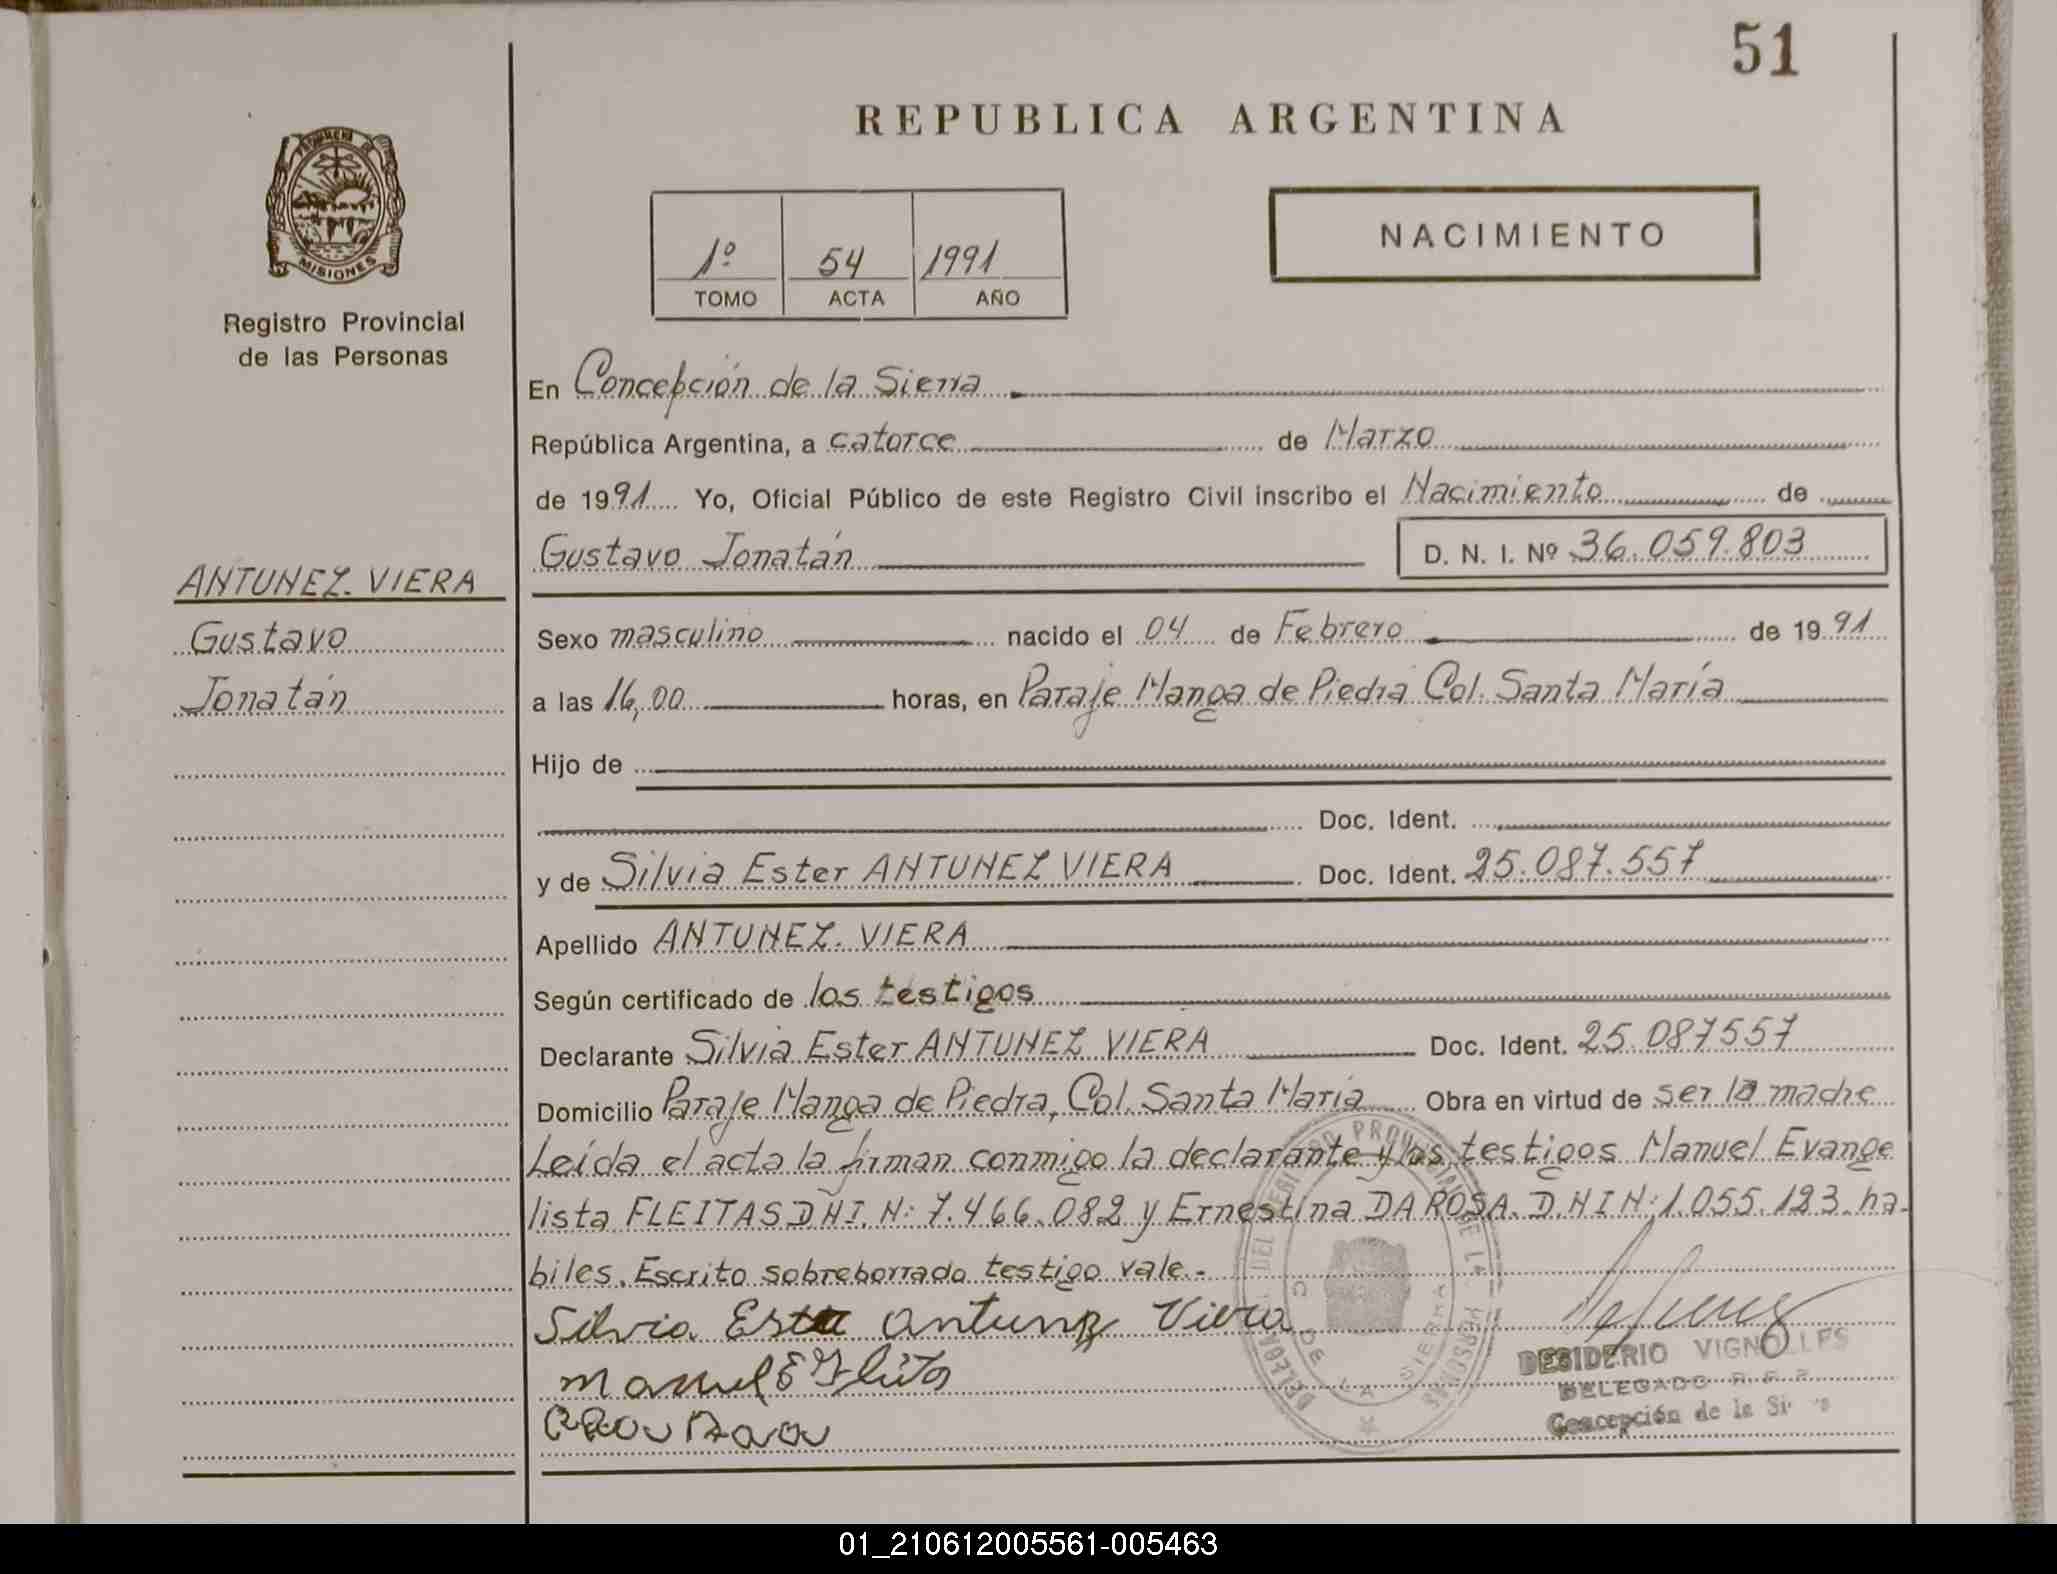 51
REPUBLICA ARGENTINA
PROVINCIA DE
MISIONES
Registro Provincial
de las Personas
1º 54 1991
TOMO ACTA AÑO
NACIMIENTO
En Concepción de la Sierra
República Argentina, a catorce de Marzo
de 1991 Yo, Oficial Público de este Registro Civil inscribo el Nacimiento de
Gustavo Jonatán D. N. I. Nº 36.059.803
ANTUNEZ VIERA
Gustavo
Jonatán
Sexo masculino nacido el 04 de Febrero de 1991
a las 16,00 horas, en Paraje Manga de Piedra Col. Santa María
Hijo de
Doc. Ident.
y de Silvia Ester ANTUNEZ VIERA Doc. Ident. 25.087.557
Apellido ANTUNEZ VIERA
Según certificado de los testigos
Declarante Silvia Ester ANTUNEZ VIERA Doc. Ident. 25.087557
Domicilio Paraje Manga de Piedra, Col. Santa María Obra en virtud de ser la madre
Leída el acta la firman conmigo la declarante y los testigos Manuel Evange
lista FLEITAS DNI. N: 7.466.082 y Ernestina DA ROSA. D.N I N: 1.055.123 ha-
biles. Escrito sobreborrado testigo vale.-
Silvia Ester Antunez Viera
Manuel E Fleita
DESIDERIO VIGNOLLES
DELEGADO R. P. P.
Concepción de la Si
DEL REGISTRO PROVINCIAL DE LAS PERSONAS
C. DE LA SIERRA
01_210612005561-005463